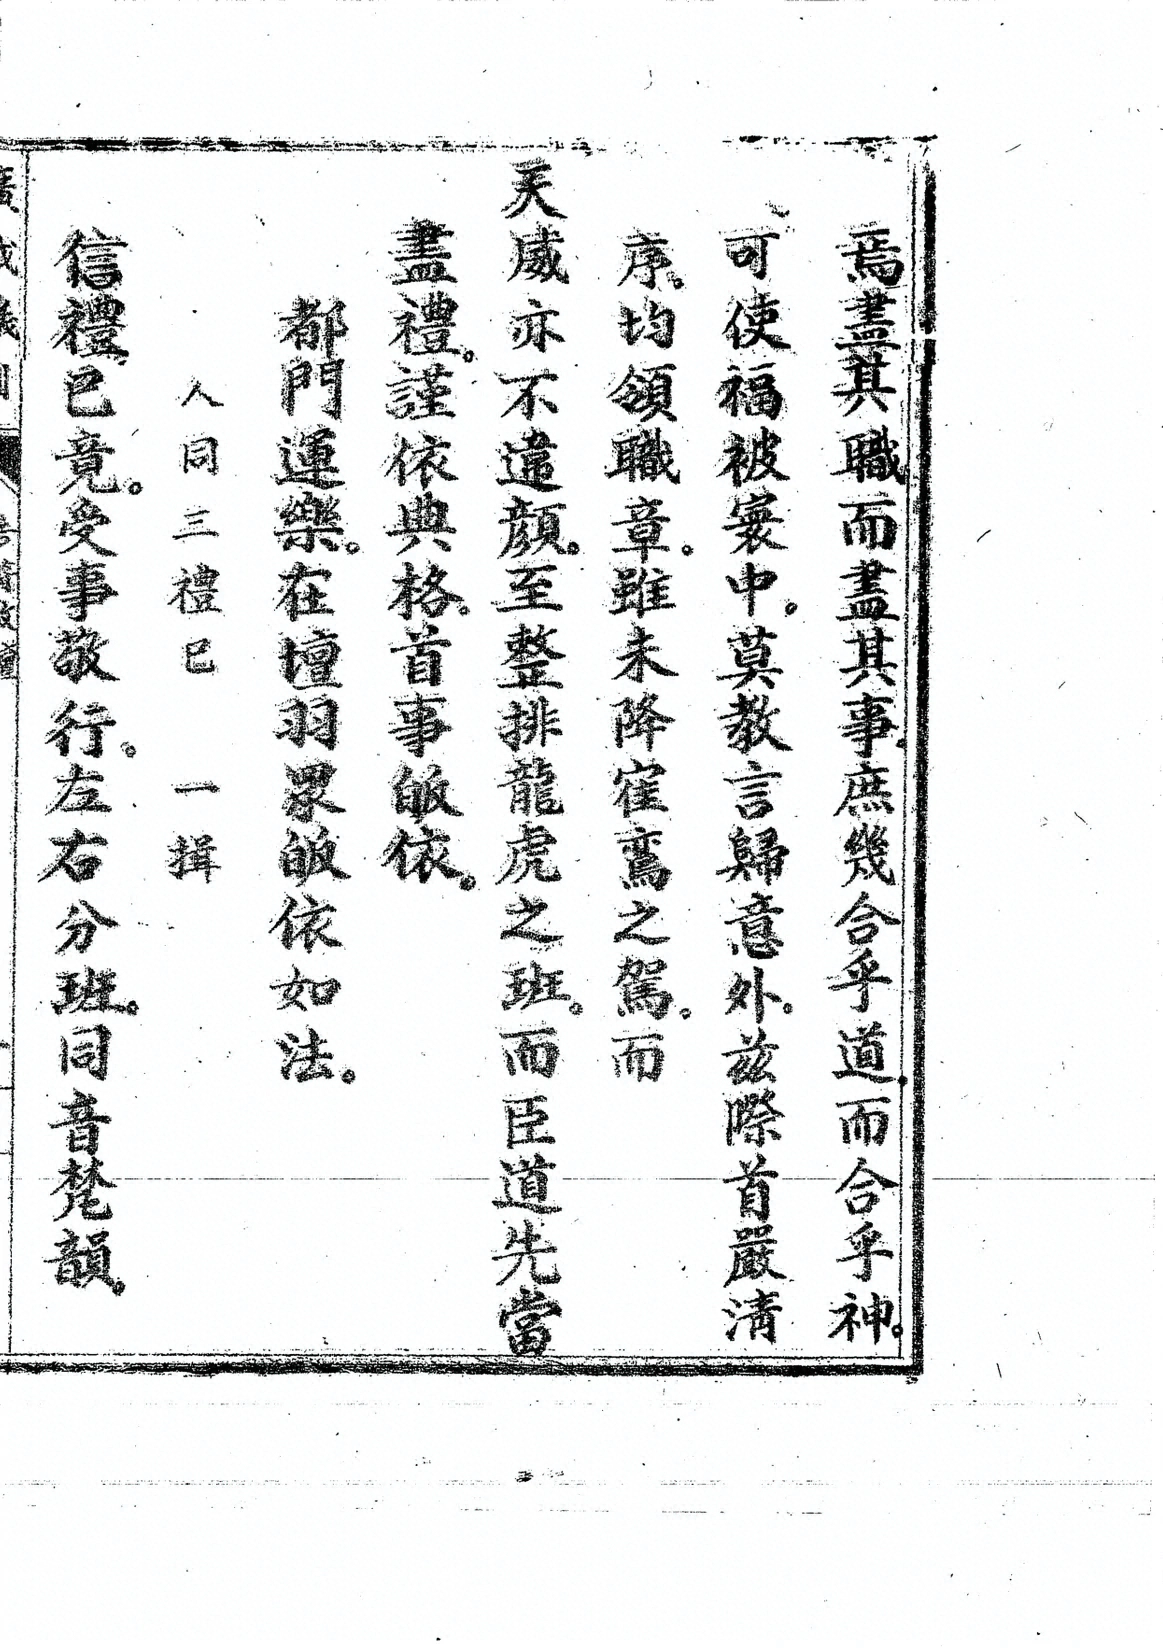 焉盡其職而盡其事。庶幾合乎道。而合乎神。
可使福被寰中。莫教言歸意外。茲際首嚴清
序。均領職章。雖未降寉鸞之駕。而
天威亦不違顔。至整排龍虎之班。而臣道先當
盡禮。謹依典格。首事皈依。
都門運樂。在壇羽眾皈依如法。
人同三禮已　一揖
信禮已竟。受事敬行。左右分班。同音梵韻。
廣成儀制